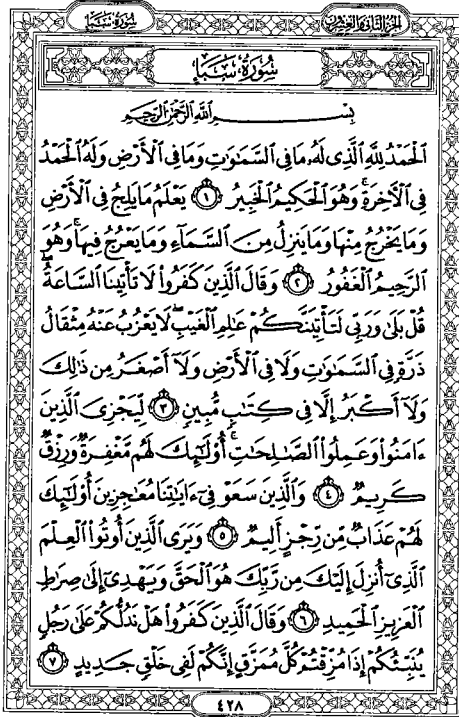 سُورَةُ سَبَإٍ الجزء الثاني والعشرون
سُورَةُ سَبَإٍ
بِسْمِ ٱللَّهِ ٱلرَّحْمَٰنِ ٱلرَّحِيمِ
ٱلْحَمْدُ لِلَّهِ ٱلَّذِى لَهُۥ مَا فِى ٱلسَّمَٰوَٰتِ وَمَا فِى ٱلْأَرْضِ وَلَهُ ٱلْحَمْدُ
فِى ٱلْءَاخِرَةِ ۚ وَهُوَ ٱلْحَكِيمُ ٱلْخَبِيرُ ١ يَعْلَمُ مَا يَلِجُ فِى ٱلْأَرْضِ
وَمَا يَخْرُجُ مِنْهَا وَمَا يَنزِلُ مِنَ ٱلسَّمَآءِ وَمَا يَعْرُجُ فِيهَا ۚ وَهُوَ
ٱلرَّحِيمُ ٱلْغَفُورُ ٢ وَقَالَ ٱلَّذِينَ كَفَرُوا۟ لَا تَأْتِينَا ٱلسَّاعَةُ ۖ
قُلْ بَلَىٰ وَرَبِّى لَتَأْتِيَنَّكُمْ عَٰلِمِ ٱلْغَيْبِ ۖ لَا يَعْزُبُ عَنْهُ مِثْقَالُ
ذَرَّةٍ فِى ٱلسَّمَٰوَٰتِ وَلَا فِى ٱلْأَرْضِ وَلَآ أَصْغَرُ مِن ذَٰلِكَ
وَلَآ أَكْبَرُ إِلَّا فِى كِتَٰبٍ مُّبِينٍ ٣ لِّيَجْزِىَ ٱلَّذِينَ
ءَامَنُوا۟ وَعَمِلُوا۟ ٱلصَّٰلِحَٰتِ ۚ أُو۟لَٰٓئِكَ لَهُم مَّغْفِرَةٌ وَرِزْقٌ
كَرِيمٌ ٤ وَٱلَّذِينَ سَعَوْ فِىٓ ءَايَٰتِنَا مُعَٰجِزِينَ أُو۟لَٰٓئِكَ
لَهُمْ عَذَابٌ مِّن رِّجْزٍ أَلِيمٌ ٥ وَيَرَى ٱلَّذِينَ أُوتُوا۟ ٱلْعِلْمَ
ٱلَّذِىٓ أُنزِلَ إِلَيْكَ مِن رَّبِّكَ هُوَ ٱلْحَقَّ وَيَهْدِىٓ إِلَىٰ صِرَٰطِ
ٱلْعَزِيزِ ٱلْحَمِيدِ ٦ وَقَالَ ٱلَّذِينَ كَفَرُوا۟ هَلْ نَدُلُّكُمْ عَلَىٰ رَجُلٍ
يُنَبِّئُكُمْ إِذَا مُزِّقْتُمْ كُلَّ مُمَزَّقٍ إِنَّكُمْ لَفِى خَلْقٍ جَدِيدٍ ٧
٤٢٨